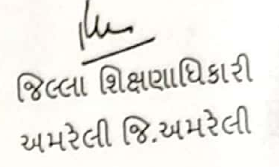 જિલ્લા શિક્ષણાધિકારી
અમરેલી જિ.અમરેલી